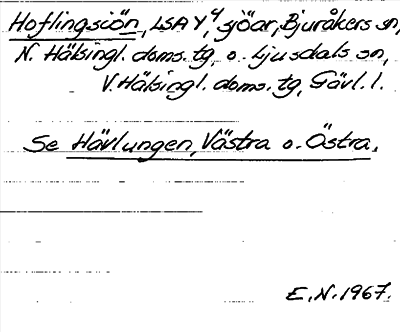 Hoflingsiön, LSA Y, 4, sjöar, Bjuråkers sn,
N. Hälsingl. doms. tg, o. Ljusdals sn,
V. Hälsingl. doms. tg, Gävl. l.
Se Hävlungen, Västra o. Östra.
E. N. 1967.